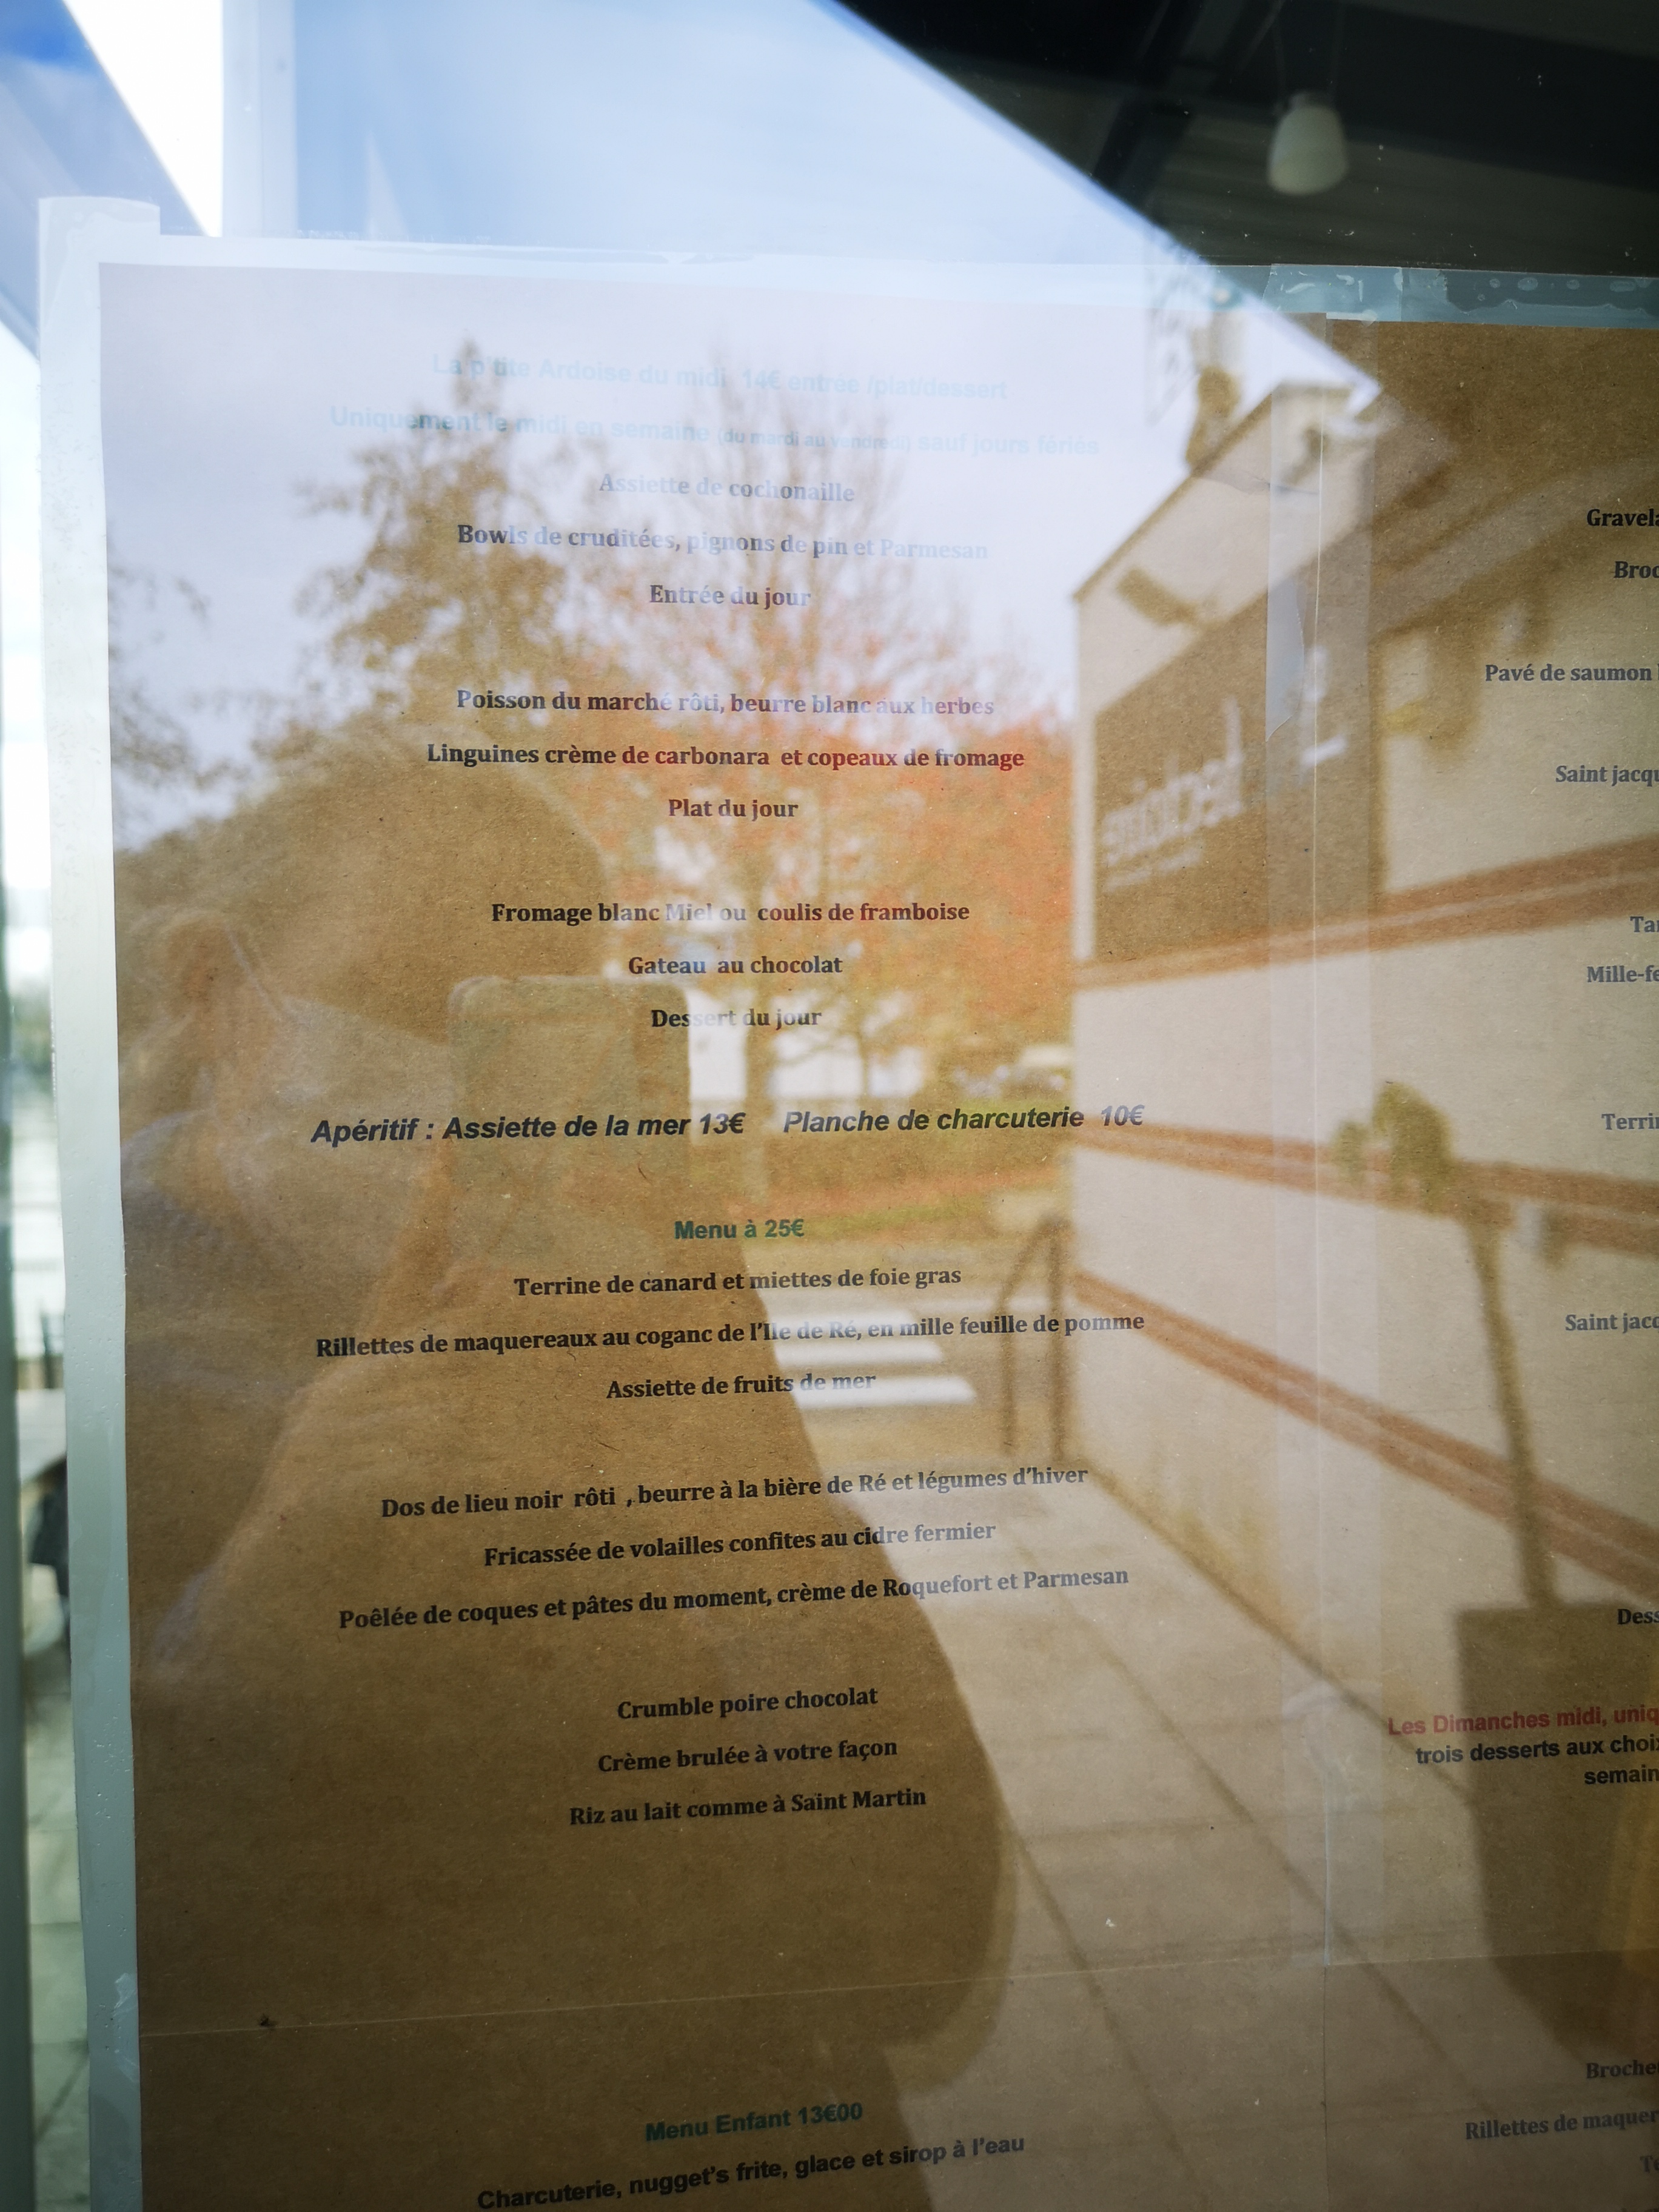 La p'tite Ardoise du midi 14€ entrée /plat/dessert
Uniquement le midi en semaine (du mardi au vendredi) sauf jours fériés
Assiette de cochonaille
Bowls de cruditées, pignons de pin et Parmesan
Entrée du jour
Poisson du marché rôti, beurre blanc aux herbes
Linguines crème de carbonara et copeaux de fromage
Plat du jour
Fromage blanc Miel ou coulis de framboise
Gateau au chocolat
Dessert du jour
Apéritif : Assiette de la mer 13€ Planche de charcuterie 10€
Menu à 25€
Terrine de canard et miettes de foie gras
Rillettes de maquereaux au coganc de l'Ile de Ré, en mille feuille de pomme
Assiette de fruits de mer
Dos de lieu noir rôti , beurre à la bière de Ré et légumes d'hiver
Fricassée de volailles confites au cidre fermier
Poêlée de coques et pâtes du moment, crème de Roquefort et Parmesan
Crumble poire chocolat
Crème brulée à votre façon
Riz au lait comme à Saint Martin
Menu Enfant 13€00
Charcuterie, nugget's frite, glace et sirop à l'eau
Pavé de saumon
Saint
Saint
Les Dimanches midi,
trois desserts aux
Rillettes de